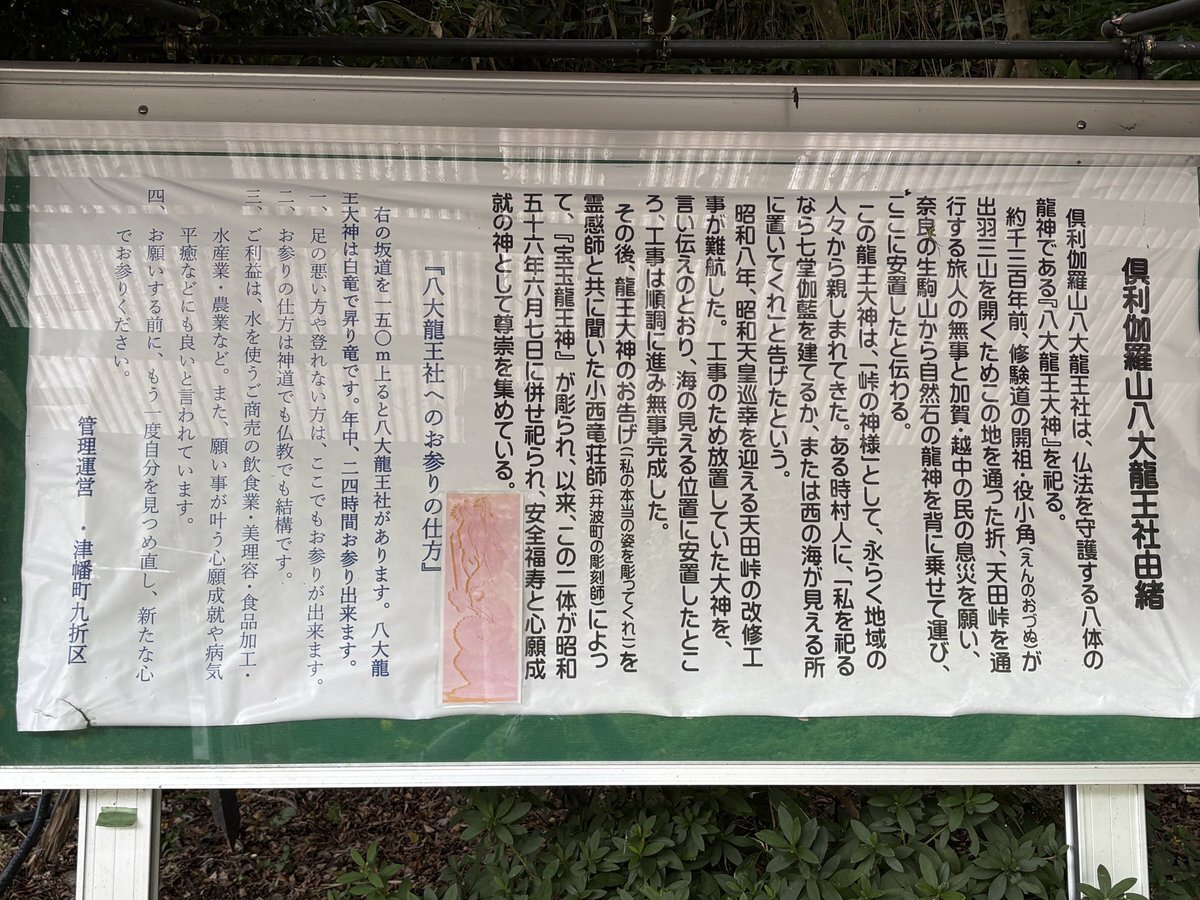 倶利伽羅山八大龍王社由緒
倶利伽羅山八大龍王社は、仏法を守護する八体の
龍神である『八大龍王大神』を祀る。
約千三百年前、修験道の開祖・役小角(えんのおづぬ)が
出羽三山を開くためこの地を通った折、天田峠を通
行する旅人の無事と加賀・越中の民の息災を願い、
奈良の生駒山から自然石の龍神を背に乗せて運び、
ここに安置したと伝わる。
この龍王大神は、「峠の神様」として、永らく地域の
人々から親しまれてきた。ある時村人に、「私を祀る
なら七堂伽藍を建てるか、または西の海が見える所
に置いてくれ」と告げたという。
昭和八年、昭和天皇巡幸を迎える天田峠の改修工
事が難航した。工事のため放置していた大神を、
言い伝えのとおり、海の見える位置に安置したとこ
ろ、工事は順調に進み無事完成した。
その後、龍王大神のお告げ(「私の本当の姿を彫ってくれ」)を
霊感師と共に聞いた小西竜荘師(井波町の彫刻師)によっ
て、『宝玉龍王神』が彫られ、以来、この二体が昭和
五十六年六月七日に併せ祀られ、安全福寿と心願成
就の神として尊崇を集めている。
『八大龍王社へのお参りの仕方』
右の坂道を一五〇m上ると八大龍王社があります。八大龍
王大神は白竜で昇り竜です。年中、二四時間お参り出来ます。
一、足の悪い方や登れない方は、ここでもお参りが出来ます。
二、お参りの仕方は神道でも仏教でも結構です。
三、ご利益は、水を使うご商売の飲食業・美理容・食品加工・
水産業・農業など。また、願い事が叶う心願成就や病気
平癒などにも良いと言われています。
四、お願いする前に、もう一度自分を見つめ直し、新たな心
でお参りください。
管理運営 ・津幡町九折区